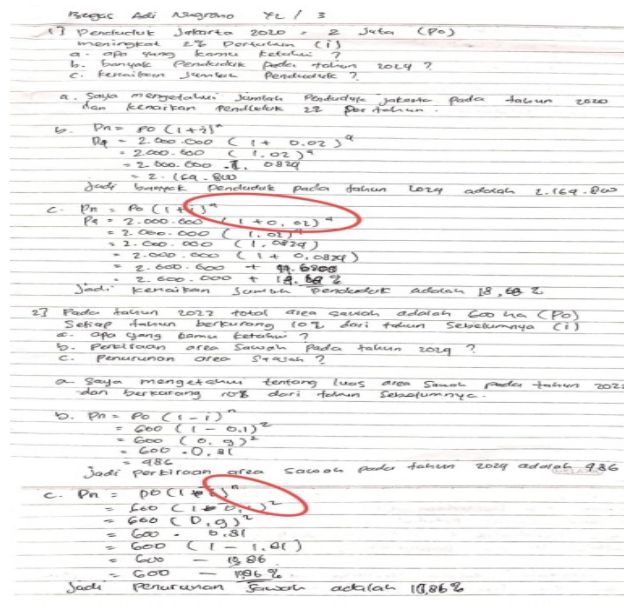 Bagas Adi Nugroho XL / 3
1] Penduduk Jakarta 2020 = 2 Juta (Po)
meningkat 2% Pertahun (i)
a. apa yang kamu ketahui ?
b. banyak Penduduk Pada tahun 2024 ?
c. kenaikan Jumlah Penduduk ?
a. Saya mengetahui Jumlah Penduduk Jakarta Pada tahun 2020
dan kenaikan Penduduk 2% Per tahun.
b. Pn = Po (1+i)ⁿ
P4 = 2.000.000 ( 1 + 0.02)⁴
= 2.000.000 ( 1.02)⁴
= 2.000.000 . 1, 0824
= 2.164.800
Jadi banyak Penduduk pada tahun 2024 adalah 2.164.800
c. Pn = Po (1+i)ⁿ
P4 = 2.000.000 ( 1 + 0.02)⁴
= 2.000.000 ( 1.02)⁴
= 2.000.000 ( 1.0824)
= 2.000.000 ( 1 + 0.0824)
= 2.000.000 +
= 2.000.000 +
Jadi kenaikan Jumlah Penduduk adalah 18,68 %
2] Pada tahun 2022 total area sawah adalah 600 ha (Po)
Setiap tahun berkurang 10% dari tahun Sebelumnya (i)
a. apa yang kamu ketahui ?
b. Perkiraan area Sawah Pada tahun 2024 ?
c. Penurunan area Sawah ?
a. Saya mengetahui tentang luas area Sawah pada tahun 2022
dan berkurang 10% dari tahun Sebelumnya.
b. Pn = Po (1 - i)ⁿ
= 600 (1 - 0.1)²
= 600 ( 0.9)²
= 600 . 0,81
= 486
Jadi Perkiraan area sawah pada tahun 2024 adalah 486
c. Pn = Po (1 - i)ⁿ
= 600 (1 - 0,1)²
= 600 ( 0,9)²
= 600 . 0.81
= 600 ( 1 - 1.81)
= 600 - 19,86
= 600 - %
Jadi Penurunan Sawah adalah 19,86 %